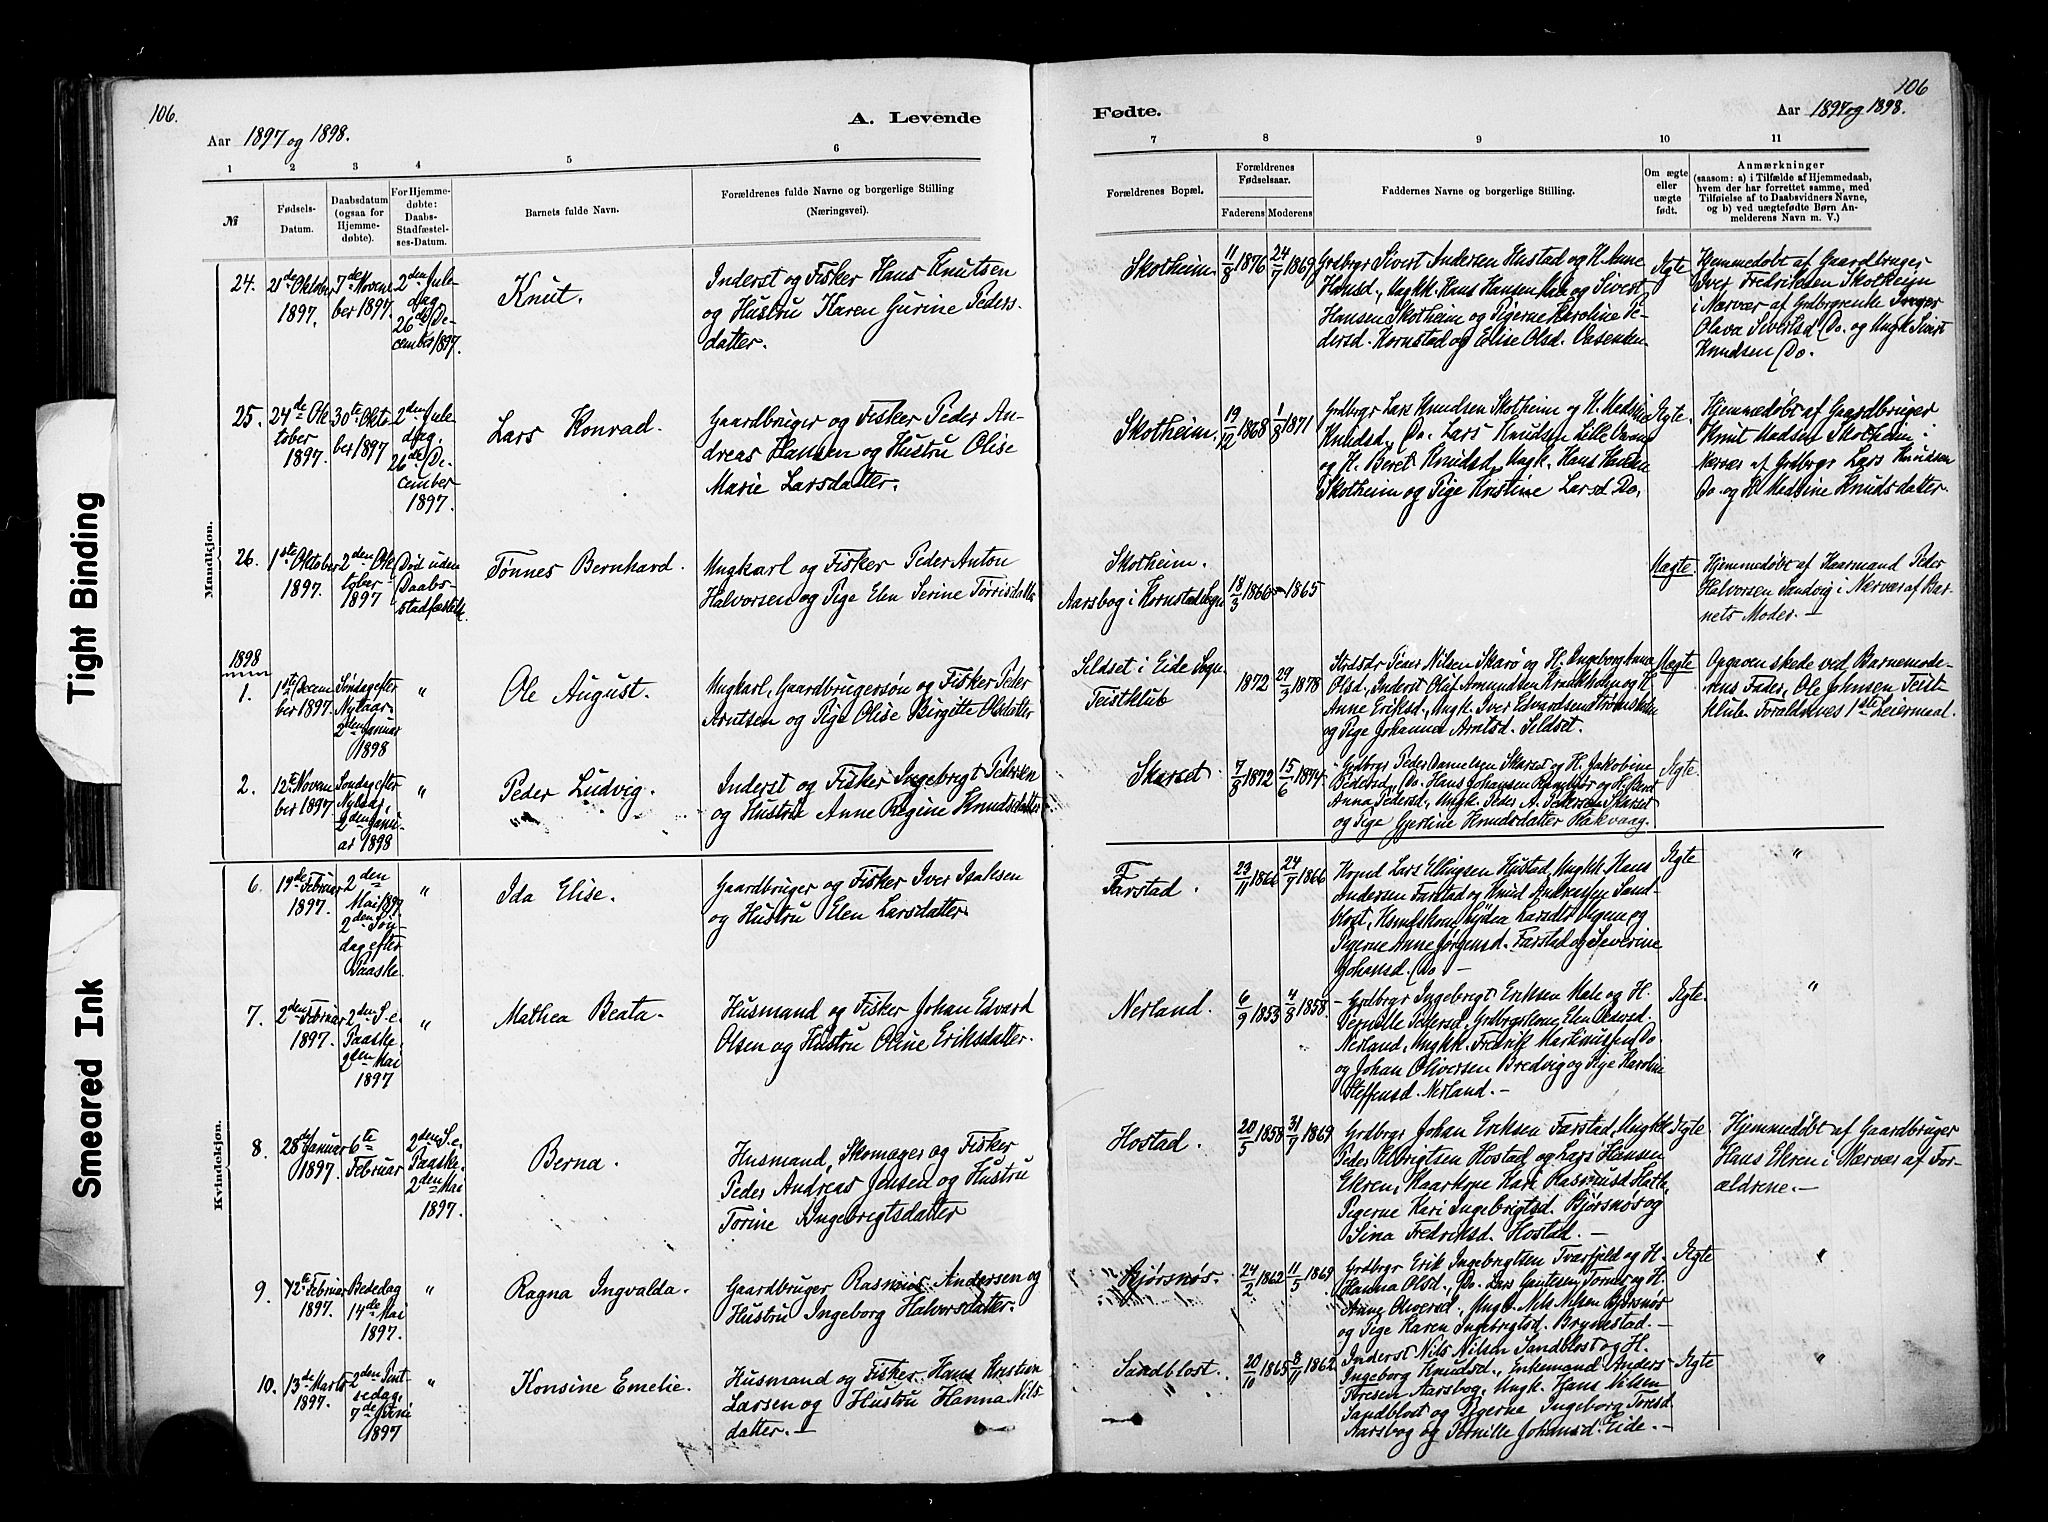 106.
106
A. Levende
Fødte.
Aar 1897 og 1898.
Aar 1897 og 1898.
1 2 3 4 5 6
7 8 9 10 11
№
Fødsels-
Datum.
Daabsdatum
(ogsaa for
Hjemme-
døbte).
For Hjemme-
døbte:
Daabs-
Stadfæstel-
ses-Datum.
Barnets fulde Navn.
Forældrenes fulde Navne og borgerlige Stilling
(Næringsvei).
Forældrenes Bopæl.
Forældrenes
Fødselsaar.
Faderens
Moderens
Faddernes Navne og borgerlige Stilling.
Om ægte
eller
uægte
født.
Anmærkninger
(saasom: a) i Tilfælde af Hjemmedaab,
hvem der har forrettet samme, med
Tilføielse af to Daabsvidners Navne,
og b) ved uægtefødte Børn An-
melderens Navn m. V.)
Mandkjøn.
24.
21de Oktober
1897.
7de Novem-
ber 1897.
2den Jule-
dag,
26de De-
cember 1897.
Knut.
Inderst og Fisker Hans Knutsen
og Hustru Karen Gurine Peders-
datter.
Skotheim.
11/8 1876
24/7 1869
Grdbrgr Sivert Andersen Hustad og H. Anne
Hansd., Ungkk. Hans Hansen og Sivert
Hansen Skotheim og Pigerne Karoline Pe-
dersd. Kornstad og Elise Olsd.
Ægte
Hjemmedøbt af Gaardbruger
Iver Fredriksen Skotheim
i Nærvær af Grdbrgrenke
Olava Sivertsd. Do. og Ungk. Sivert
Knudsen Do.
25.
24de Ok-
tober
1897.
30te Okto-
ber 1897
2den Jule-
dag,
26de De-
cember
1897.
Lars Konrad.
Gaardbruger og Fisker Peder An-
dreas Hansen og Hustru Olise
Marie Larsdatter.
Skotheim.
19/12 1868
1/8 1871
Grdbrgr Lars Knudsen Skotheim og H. Madsine
Knudsd., Do. Lars Knudsen Lille
og H. Beret Knudsd., Ungk. Hans Hansen
Skotheim og Pige Kristine Larsd. Do.
Ægte.
Hjemmedøbt af Gaardbruger
Knut Madsen Skotheim i
Nærvær af Grdbrgr Lars Knudsen
Do. og H. Madsine Knudsdatter.
26.
1ste Oktober
1897.
2den Ok-
tober
1897
Død uden
Daabs-
stadfæstelse
Tønnes Bernhard.
Ungkarl og Fisker Peder Anton
Halvorsen og Pige Elen Serine Tørrisdatter
Skotheim.
Aarsbog i Kornstad Sogn
18/3 1866
1865
Uægte
Hjemmedøbt af Haarmand Peder
Halvorsen Sandvig i Nærvær af Bar-
nets Moder. —
1898
1.
1ste Decem-
ber 1897.
Søndag efter
Nytaar
2den Januar
1898
"
Ole August.
Ungkarl, Gaardbrugersøn og Fisker Peder
Arntsen og Pige Olise Birgitte Olsdatter
Seldset i Eide Sogn
Teistklub
1872
29/3 1878
Strdsdr Peder Nilsen Skarø og H. Ingeborg Anna
Olsd., Inderst Oluf Amundsen Kraakholm og H.
Anne Eriksd., Ungk. Iver Edvardsen Strømsholm
og Pige Johanna Arntsd. Seldset.
Uægte
Opgaven skede ved Barnemode-
rens Fader, Ole Johnsen Teist-
klub. Forældrenes 1ste Leiermaal.
2.
12te Novem-
ber 1897
Søndag efter
Nytaar,
2den Janu-
ar 1898
"
Peder Ludvig.
Inderst og Fisker Ingebrigt Pedersen
og Hustru Anne Regine Knudsdatter
Skarset.
7/8 1872
15/6 1874
Grdbrgr Peder Danielsen Skarset og H. Jakobine
Pedersd., Do. Hans Johansen og H.
Anna Pedersd., Ungk. Peder A. Pedersen Skarset
og Pige Gjertine Knudsdatter Rakvaag.
Ægte.
Kvindekjøn.
6.
19de Februar
1897.
2den
Mai 1897
2den Søn-
dag efter
Paaske.
"
Ida Elise.
Gaardbruger og Fisker Iver Isaksen
og Hustru Elen Larsdatter.
Farstad.
23/11 1866
24/7 1866
Hsmd Lars Ellingsen Hustad, Ungkk. Hans
Andersen Farstad og Knud Andreassen Sand-
blost, Hsmdskone Lydea Larsdt. Vigum og
Pigerne Anne Jørgensd. Farstad og Severine
Johansd. Do. —
Ægte
"
7.
2den Februar
1897.
2den S. e.
Paaske.
2den Mai
1897
"
Mathea Beata.
Husmand og Fisker Johan Edvard
Olsen og Hustru Oline Eriksdatter.
Nerland.
6/9 1853
4/8 1858.
Grdbrgr Ingebrigt Eriksen Male og H.
Pernille Pedersd., Grdbrgrkone Elen
Nerland, Ungkk. Fredrik Martinussen Do.
og Johan Oliversen Bredvig og Pige Karoline
Steffensd. Nerland. —
Ægte.
"
8.
28de Januar
1897.
6te
Februar
2den S. e.
Paaske.
2den Mai
1897.
Berna.
Husmand, Skomager og Fisker
Peder Andreas Jensen og Hustru
Torine Ingebrigtsdatter
Hostad.
20/5 1858
31/7 1869
Grdbrgr Johan Eriksen Farstad, Ungkk.
Peder Olbrigtsen Hostad og Lars Hansen
Ekren, Kaarkone Kari Rasmusd.
Pigerne Kari Ingebrigtsd. Bjørsnøs og
Sina Fredriksd. Hostad. —
Ægte.
Hjemmedøbt af Gaardbruger
Hans Ekren i Nærvær af For-
ældrene. —
9.
12te Februar
1897.
Bededag
14de Mai
1897.
"
Ragna Ingvalda.
Gaardbruger Rasmus Andersen og
Hustru Ingeborg Halvorsdatter.
Bjørsnøs.
24/2 1862
11/5 1869
Grdbrgr Erik Ingebrigtsen Tverfjeld og H.
Hanna Olsd., Do. Lars Gautesen Tornes og H.
Anne Oliversd., Ungk. Nils Nilsen Bjørsnøs
og Pige Karen Ingebrigtsd. Brynestad. —
Ægte
"
10.
13de Marts
1897.
2den Pint-
sedag.
7de Juni
1897
"
Konsine Emelie.
Husmand og Fisker Hans Kristian
Larsen og Hustru Hanna Nils-
datter. —
Sandblost.
20/10 1865
8/11 1862
Inderst Nils Nilsen Sandblost og H.
Ingeborg Knudsd., Enkemand Anders
Toresen Aarsbog, Ungk. Hans Nilsen
Sandblost og Pigerne Ingeborg Toresd.
Aarsbog og Pernille Johansd. Eide. —
Ægte
"
Tight Binding
Smeared Ink